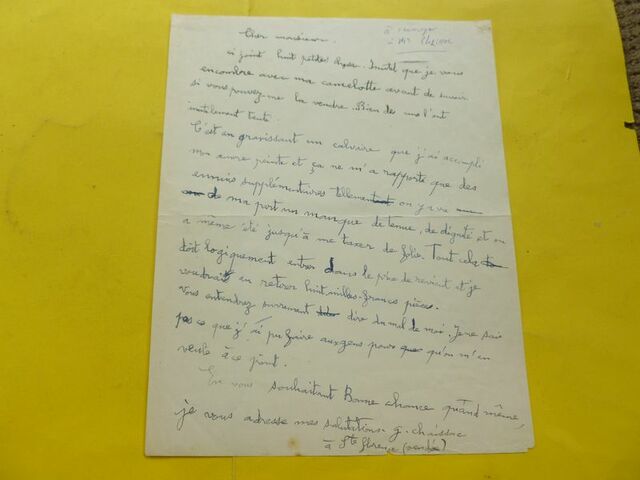 Cher monsieur.
à renvoyer
à Mr
ci joint huit petites choses. Inutile que je vous
encombre avec ma camelotte avant de savoir
si vous pouvez me la vendre. Bien des uns l'ont
inutilement tenté.
C'est en gravissant un calvaire que j'ai accompli
mon œuvre peinte et ça ne m'a rapporté que des
ennuis supplémentaires tellement on y a vu
de ma part un manque de tenue, de dignité et on
a même été jusqu'à me taxer de folie. Tout cela
doit logiquement entrer dans le prix de revient et je
voudrais en retirer huit milles francs pièces.
Vous entendrez surement dire du mal de moi. Je ne sais
pas ce que j'ai pu faire aux gens pour qu'on m'en
veule à ce point.
En vous souhaitant Bonne chance quand même,
je vous adresse mes salutations. g. chaissac
à Ste florence (vendée)